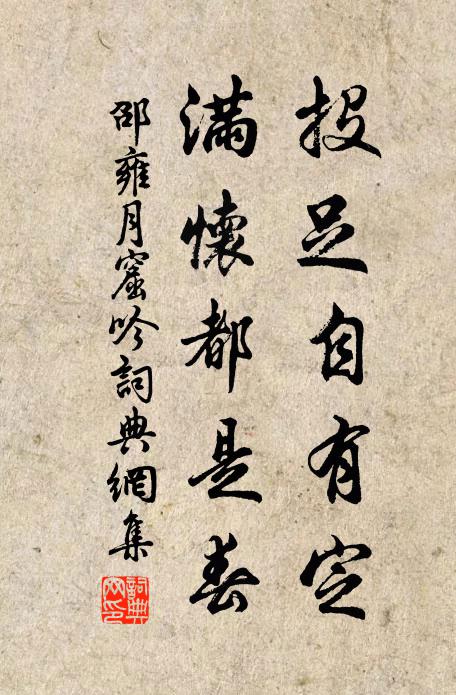 投足自有定
滿懷都是春
邵雍月窟吟詞典網集
詞典網印